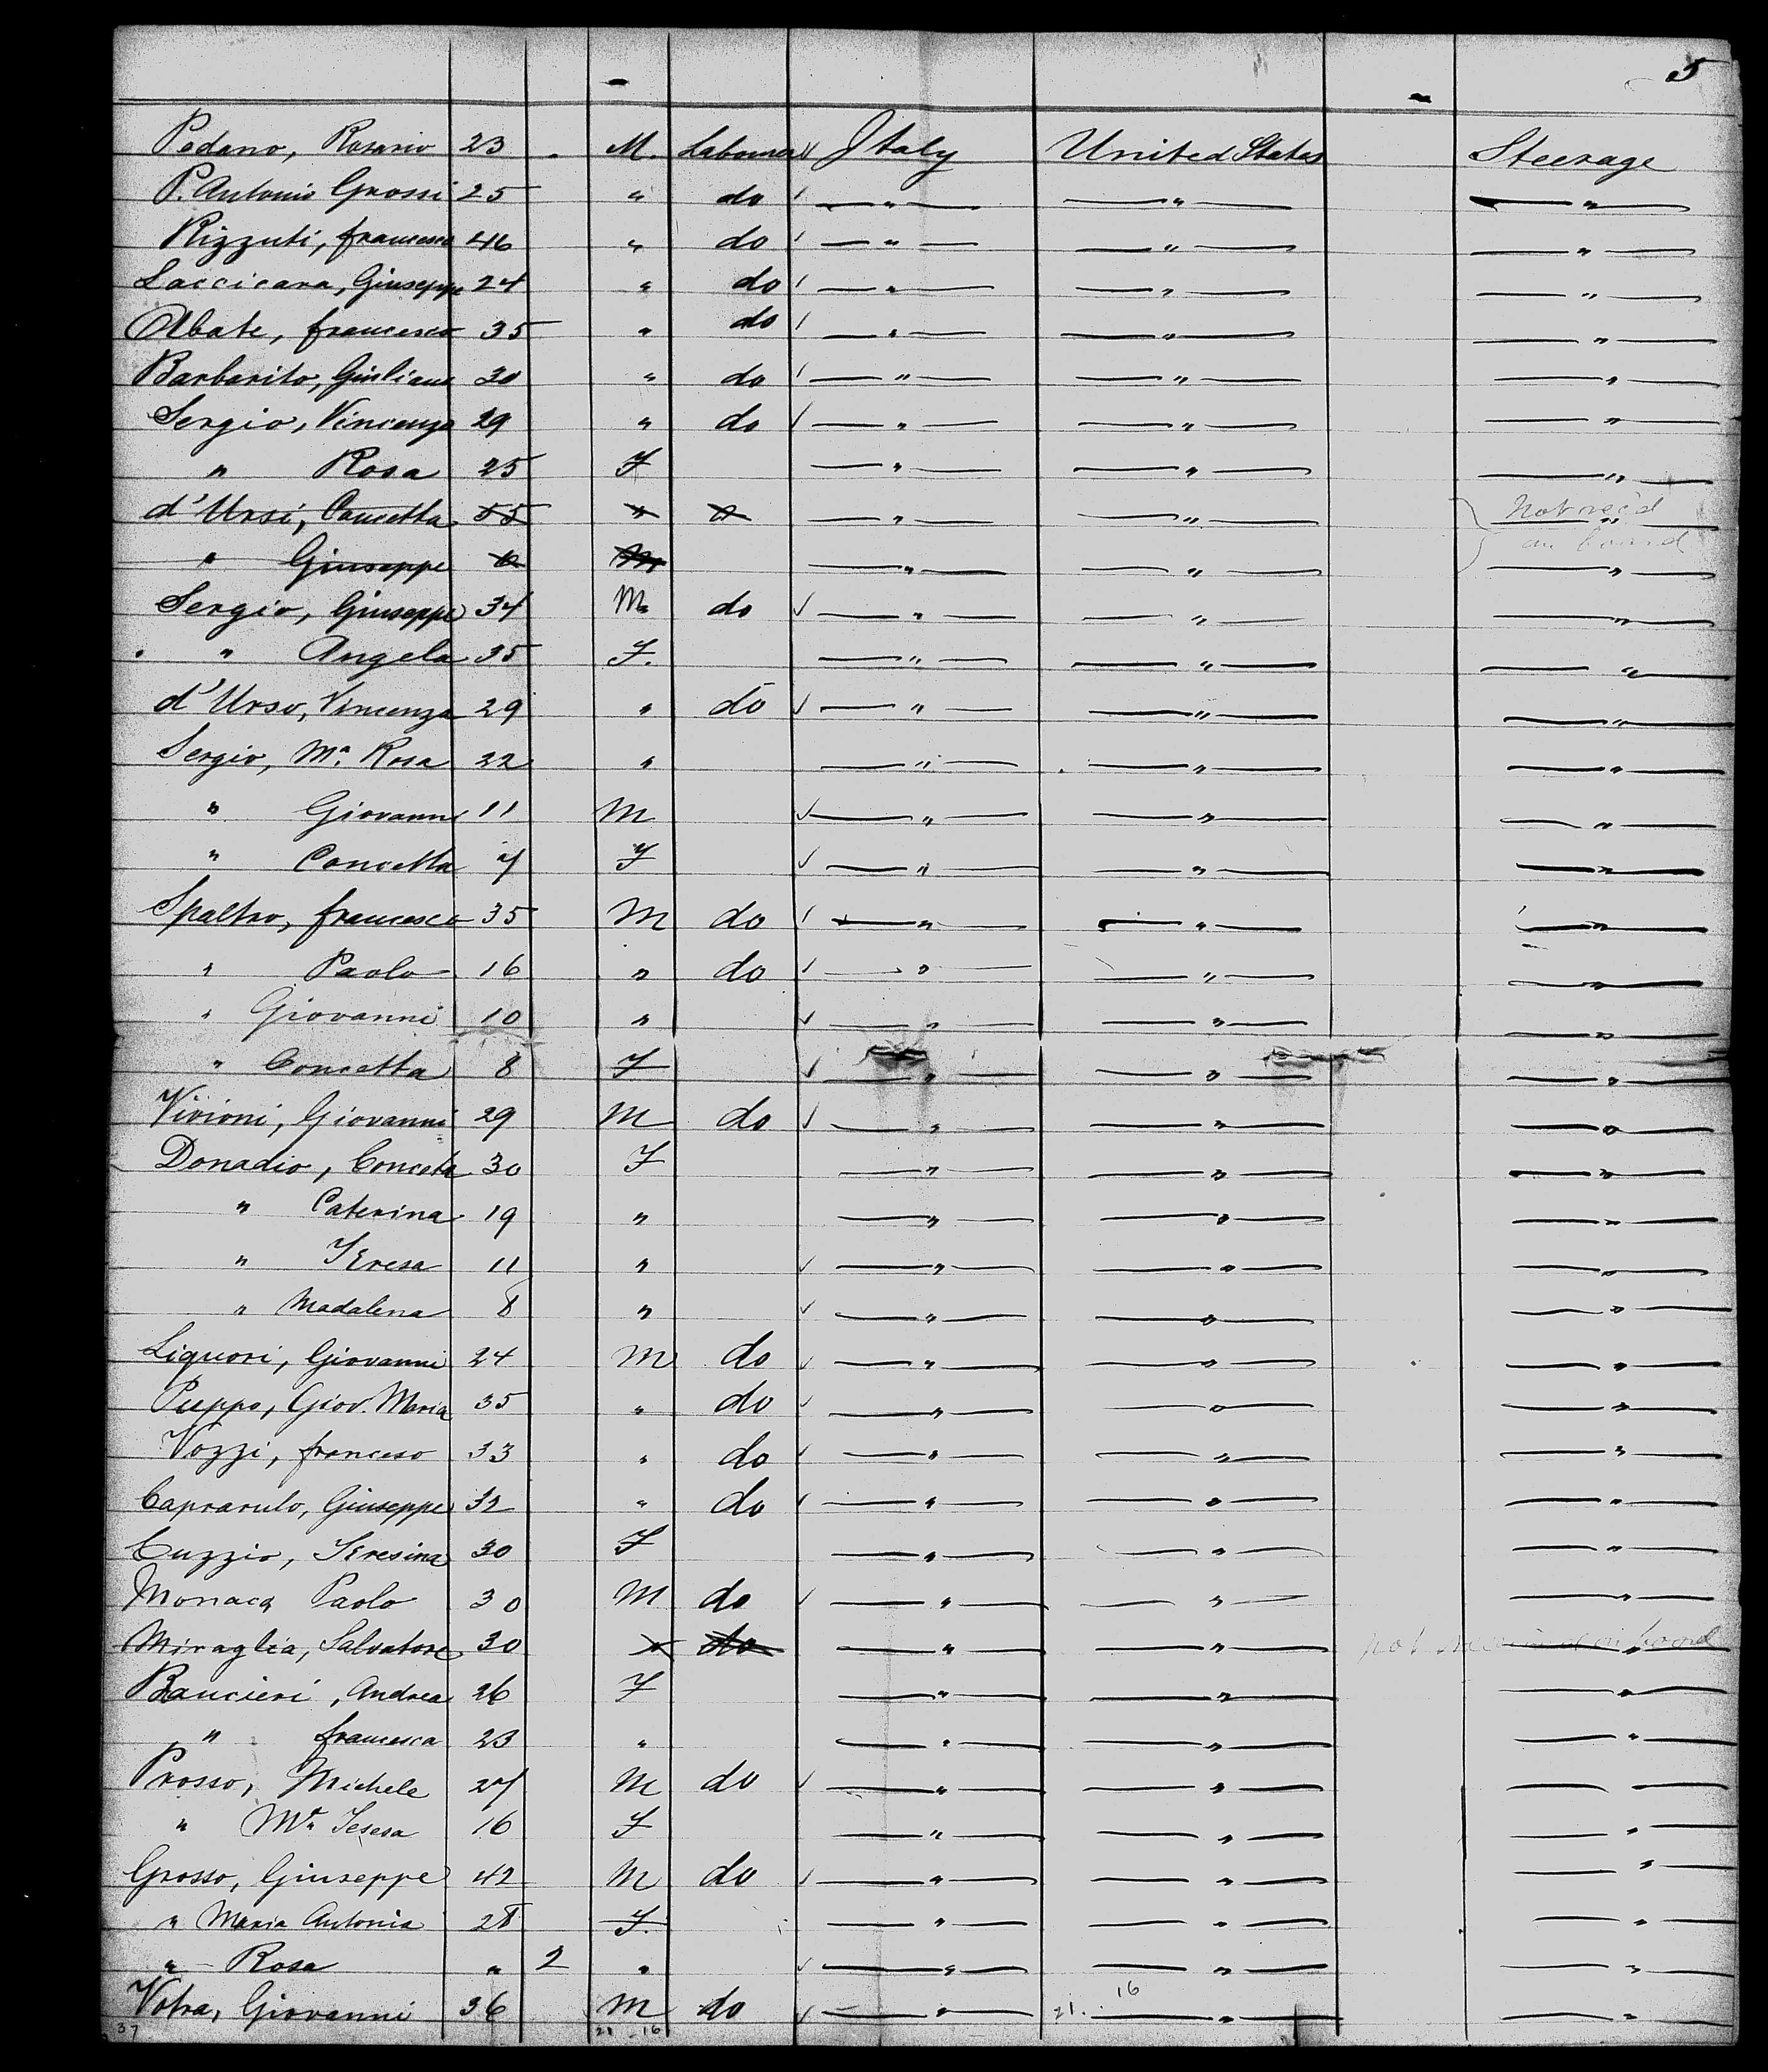 5
Pedano, Rosario 23 M. Labourer Italy United States Steerage
P. Antonio Grossi 25 " do " " "
Rizzuti, francesco 46 " do " " "
Laccicara, Giuseppe 24 " do " " "
Abate, francesco 35 " do " " "
Barbarito, Giuliano 30 " do " " "
Sergio, Vincenzo 29 " do " " "
" Rosa 25 F " " "
d'Ursi, Concetta 55 " " " " Not rec'd
" Giuseppe M " " on board "
Sergio, Giuseppe 34 M. do " " "
" Angela 35 F. " " "
d'Urso, Vincenza 29 " do " " "
Sergio, Mª Rosa 22 " " " "
" Giovanni 11 M " " "
" Concetta 7 F " " "
Spaltro, francesco 35 M do " " "
" Paolo 16 " do " " "
" Giovanni 10 " " " "
" Concetta 8 F " " "
Vivioni, Giovanni 29 M do " " "
Donadio, Conceta 30 F " " "
" Caterina 19 " " " "
" Teresa 11 " " " "
" Madalena 8 " " " "
Liquori, Giovanni 24 M do " " "
Puppo, Giov. Maria 35 " do " " "
Vozzi, franceso 33 " do " " "
Caprarulo, Giuseppe 32 " do " " "
Cuzzio, Teresina 30 F " " "
Monaca Paolo 30 M do " " "
Miraglia, Salvatore 30 " do " " not on board "
Baucieri, Andrea 26 F " " "
" francesca 23 " " " "
Prosso, Michele 27 M do " " "
" Mª Teresa 16 F " " "
Grosso, Giuseppe 42 M do " " "
" Maria Antonia 28 F. " " "
" Rosa " 2 " " " "
Votra, Giovanni 36 M do " 21. . 16 " "
37 21 - 16